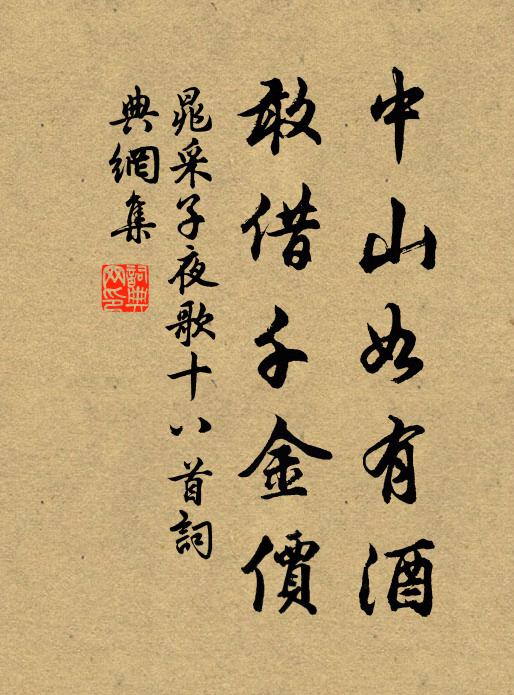 中山如有酒
敢借千金價
晁采子夜歌十八首詞
典網集
詞典網印